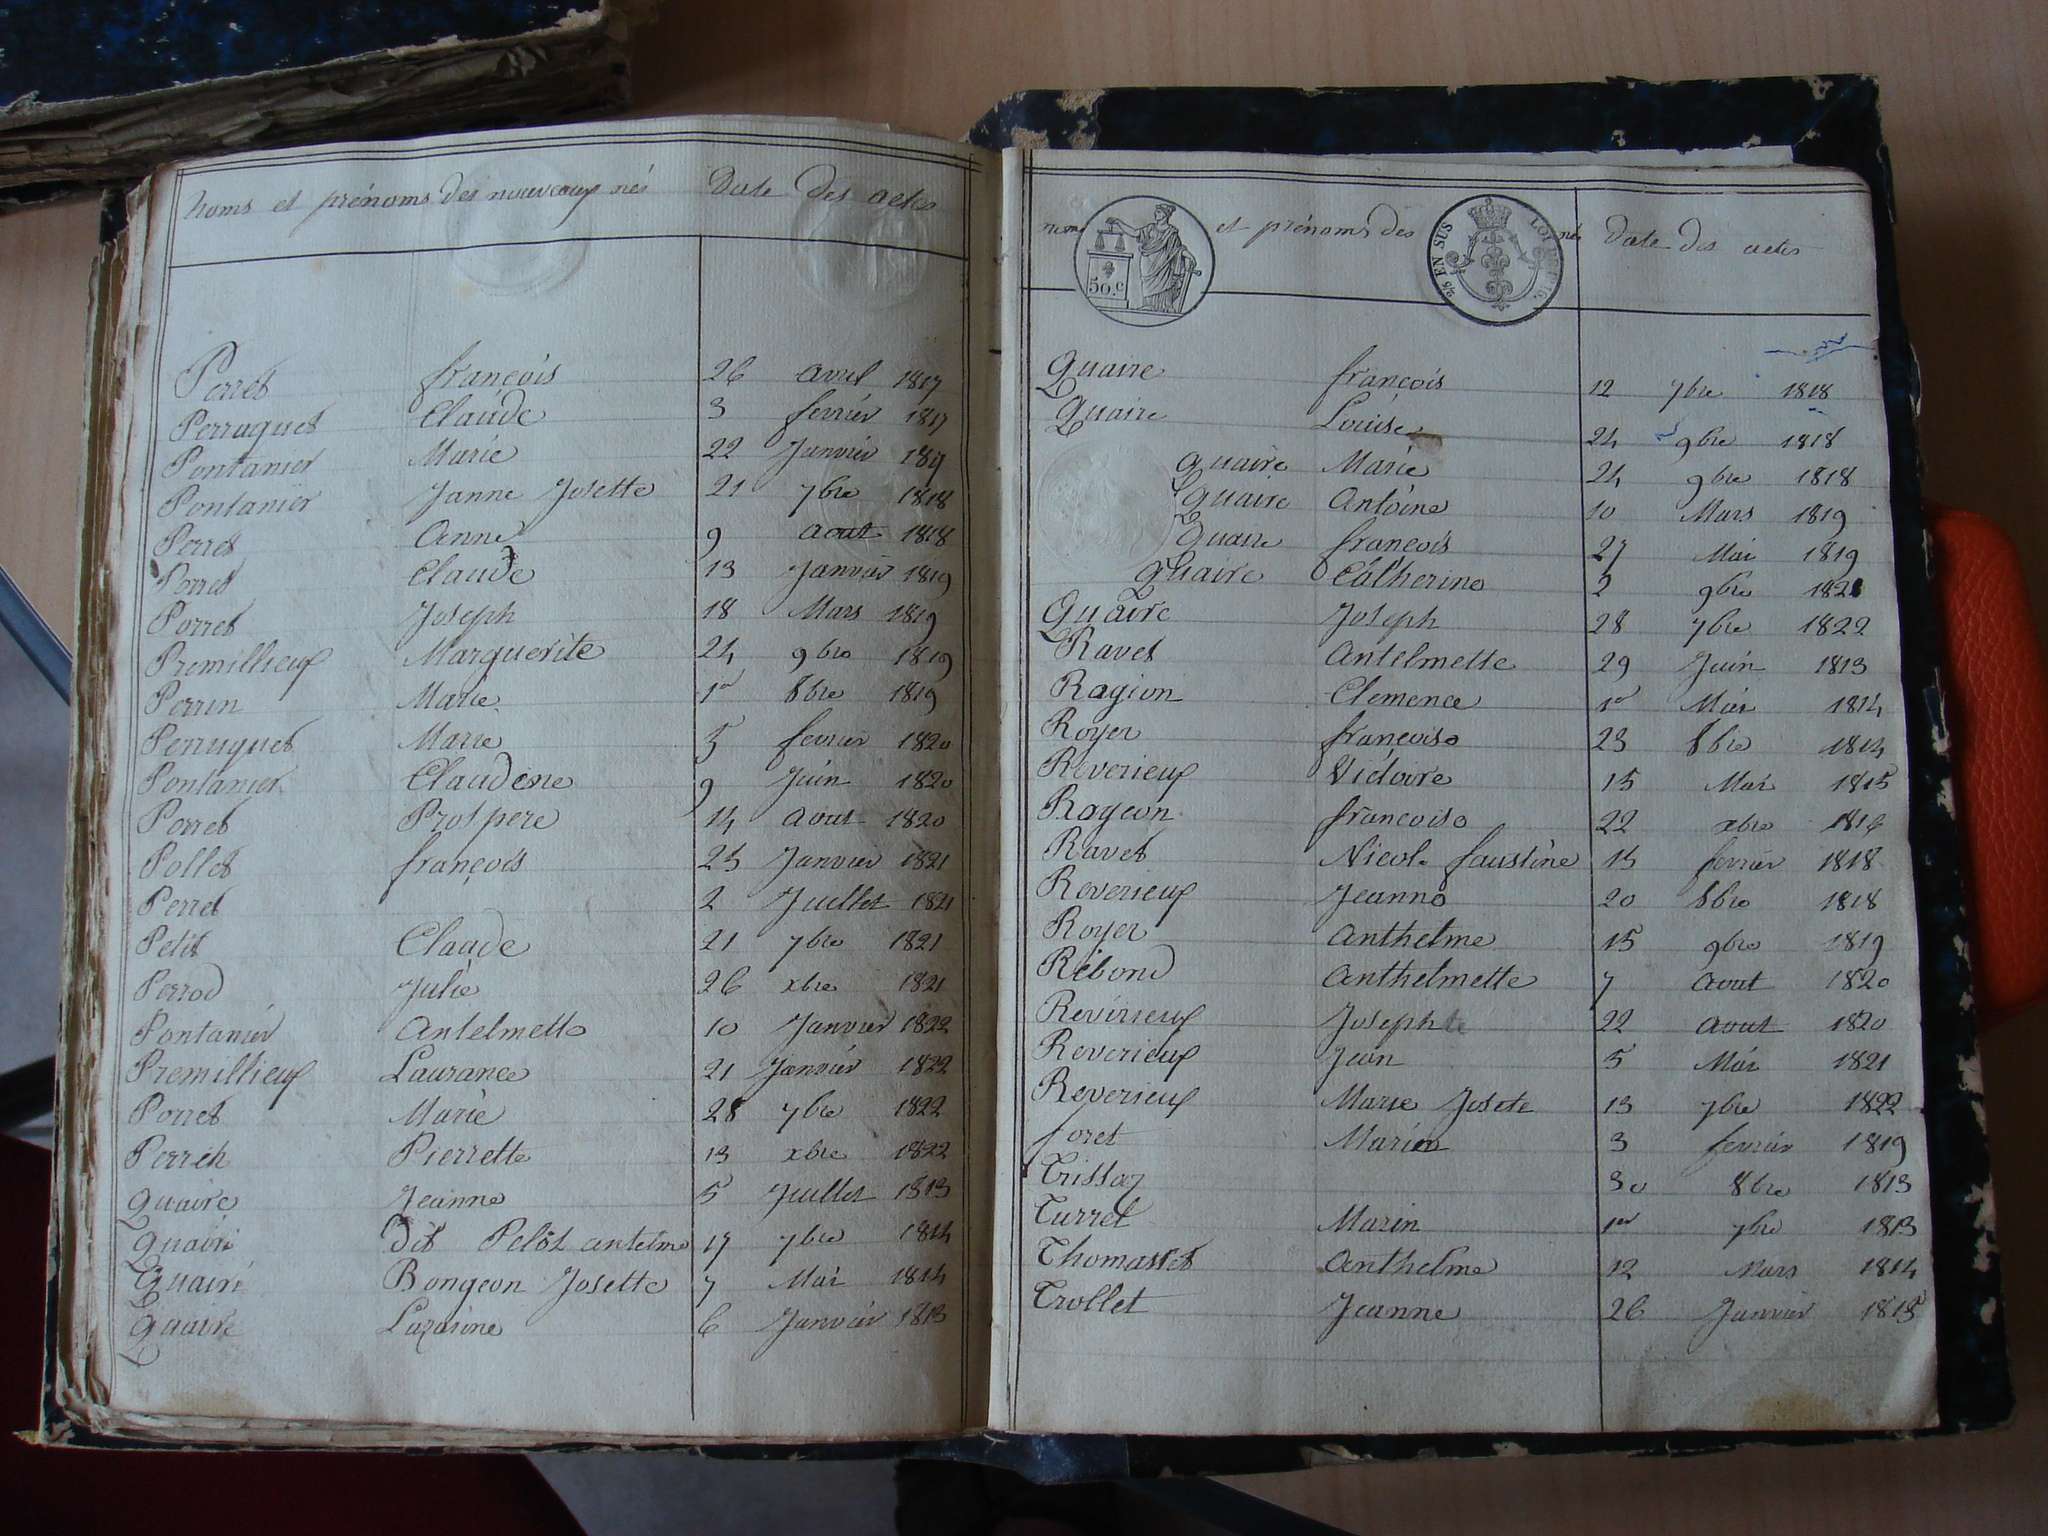 noms et prénoms des nouveaux nés Date des actes
Perret françois 26 avril 1817
Perruquet Claude 3 fevrier 1817
Pontanier Marie 22 Janvier 1817
Pontanier Janne Josette 21 7bre 1818
Perret Anne 9 aout 1818
Perret Claude 13 Janvier 1819
Porret Joseph 18 Mars 1819
Premillieux Marguerite 24 9bre 1819
Perrin Marie 1er 8bre 1819
Perruquet Marie 5 fevrier 1820
Pontanier Claudine 9 Juin 1820
Perret Prospere 14 aout 1820
Pollet françois 25 Janvier 1821
Perret 2 Juillet 1821
Petit Claude 21 7bre 1821
Perrod Julie 26 xbre 1821
Pontanier Antelmette 10 Janvier 1822
Premillieux Laurance 21 Janvier 1822
Porret Marie 28 7bre 1822
Perrin Pierrette 13 xbre 1822
Quaire Jeanne 5 Juillet 1813
Quaire dit Pelôt antelme 17 7bre 1814
Quaire Bongeon Josette 7 Mai 1814
Quaire Lazarine 6 Janvier 1813
noms et prénoms des nés Date des actes
50.c
2/5 EN SUS LOI DE 1816.
Quaire françois 12 7bre 1818
Quaire Louise 24 9bre 1818
Quaire Marie 24 9bre 1818
Quaire Antoine 10 Mars 1819
Quaire françois 27 Mai 1819
Quaire Catherine 2 9bre 1821
Quaire Joseph 28 7bre 1822
Ravet Antelmette 29 Juin 1813
Ragion Clemence 1er Mai 1814
Royer françoise 23 8bre 1814
Reverieux Victoire 15 Mai 1815
Rageon françoise 22 xbre 1816
Ravet Nicole faustine 15 fevrier 1818
Reverieux Jeanne 20 8bre 1818
Royer Anthelme 15 9bre 1819
Rebond Anthelmette 7 aout 1820
Reverieux Josephte 22 aout 1820
Reverieux Jean 5 Mai 1821
Reverieux Marie Josete 13 7bre 1822
foret Marie 3 fevrier 1819
Trissaz 30 8bre 1813
Turrel Marin 1er 7bre 1813
Thomasset Anthelme 12 Mars 1814
Trollet Jeanne 26 Janvier 1815